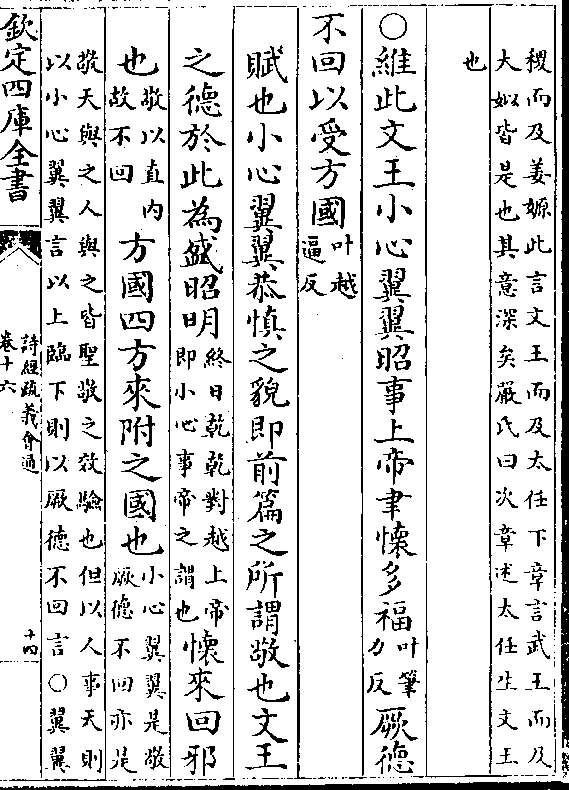 稷而及姜嫄此言文王而及太任下章言武王而及
大姒皆是也其意深矣嚴氏曰次章述太任生文王
也
○維此文王小心翼翼昭事上帝聿懷多福叶筆力反厥德
不回以受方國叶越逼反
賦也小心翼翼恭慎之貌即前篇之所謂敬也文王
之德於此為盛昭明終日乾乾對越上帝即小心事帝之謂也懷來回邪
也敬以直內故不回方國四方來附之國也小心翼翼是敬厥德不回亦是
敬天與之人與之皆聖敬之效驗也但以人事天則
以小心翼翼言以上臨下則以厥德不回言○翼翼
欽定四庫全書
詩經疏義會通
卷十六
十四